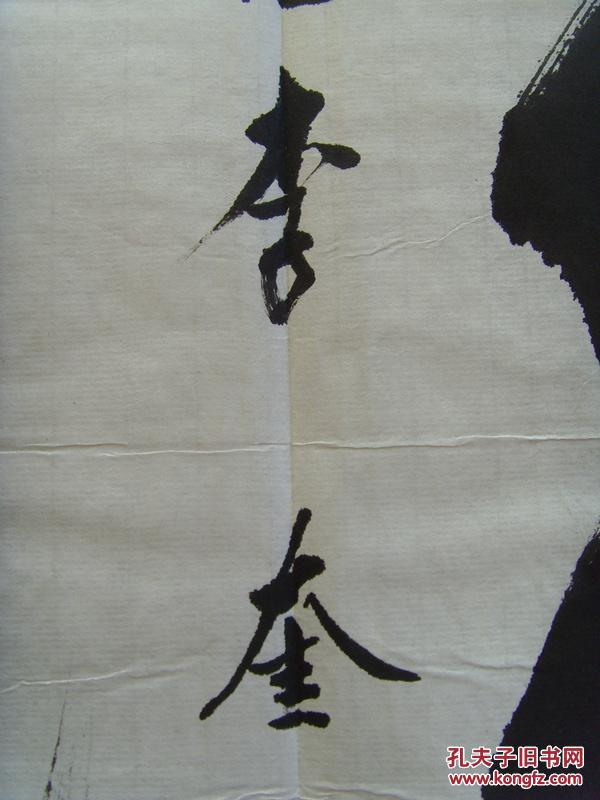 李
奎
孔夫子旧书网
www.kongfz.com